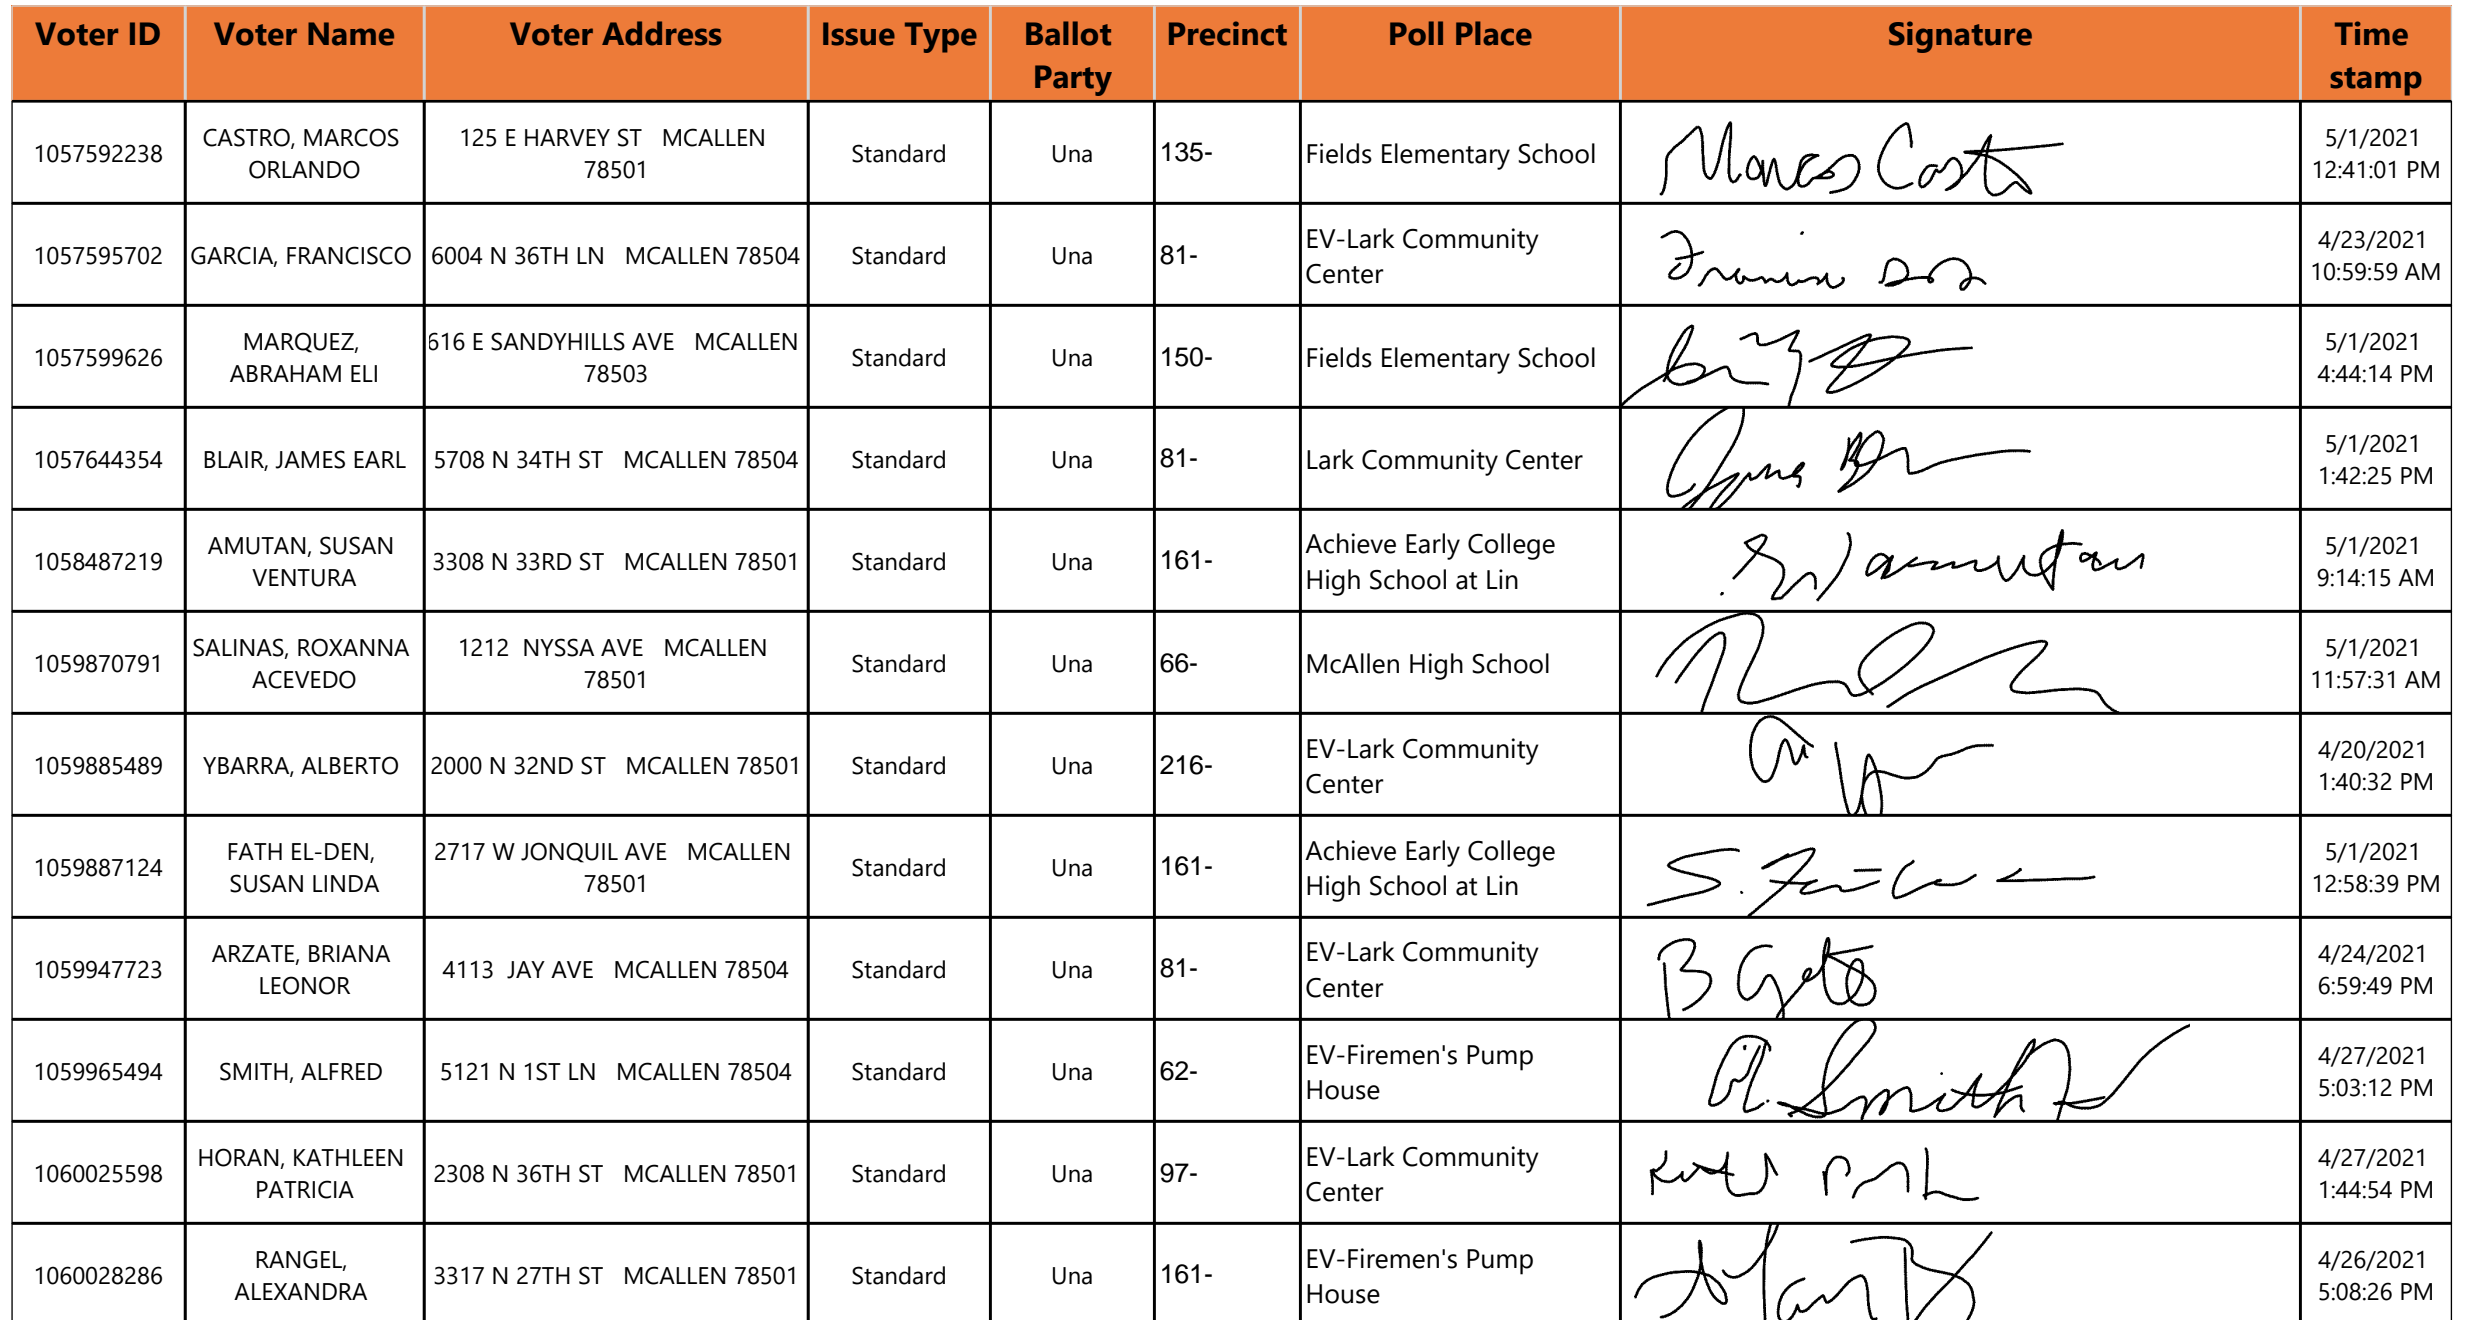 Voter ID Voter Name Voter Address Issue Type Ballot Party Precinct Poll Place Signature Time stamp
1057592238 CASTRO, MARCOS ORLANDO 125 E HARVEY ST MCALLEN 78501 Standard Una 135- Fields Elementary School Marcos Cast 5/1/2021 12:41:01 PM
1057595702 GARCIA, FRANCISCO 6004 N 36TH LN MCALLEN 78504 Standard Una 81- EV-Lark Community Center 4/23/2021 10:59:59 AM
1057599626 MARQUEZ, ABRAHAM ELI 616 E SANDYHILLS AVE MCALLEN 78503 Standard Una 150- Fields Elementary School 5/1/2021 4:44:14 PM
1057644354 BLAIR, JAMES EARL 5708 N 34TH ST MCALLEN 78504 Standard Una 81- Lark Community Center 5/1/2021 1:42:25 PM
1058487219 AMUTAN, SUSAN VENTURA 3308 N 33RD ST MCALLEN 78501 Standard Una 161- Achieve Early College High School at Lin 5/1/2021 9:14:15 AM
1059870791 SALINAS, ROXANNA ACEVEDO 1212 NYSSA AVE MCALLEN 78501 Standard Una 66- McAllen High School 5/1/2021 11:57:31 AM
1059885489 YBARRA, ALBERTO 2000 N 32ND ST MCALLEN 78501 Standard Una 216- EV-Lark Community Center 4/20/2021 1:40:32 PM
1059887124 FATH EL-DEN, SUSAN LINDA 2717 W JONQUIL AVE MCALLEN 78501 Standard Una 161- Achieve Early College High School at Lin 5/1/2021 12:58:39 PM
1059947723 ARZATE, BRIANA LEONOR 4113 JAY AVE MCALLEN 78504 Standard Una 81- EV-Lark Community Center 4/24/2021 6:59:49 PM
1059965494 SMITH, ALFRED 5121 N 1ST LN MCALLEN 78504 Standard Una 62- EV-Firemen's Pump House A. Smith 4/27/2021 5:03:12 PM
1060025598 HORAN, KATHLEEN PATRICIA 2308 N 36TH ST MCALLEN 78501 Standard Una 97- EV-Lark Community Center 4/27/2021 1:44:54 PM
1060028286 RANGEL, ALEXANDRA 3317 N 27TH ST MCALLEN 78501 Standard Una 161- EV-Firemen's Pump House 4/26/2021 5:08:26 PM